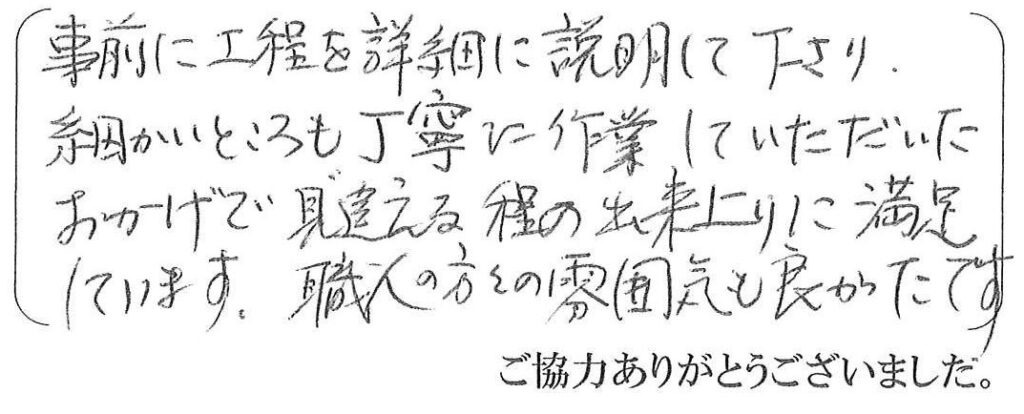 事前に工程を詳細に説明して下さり.
細かいところも丁寧に作業していただいた
おかげで見違える程の出来上りに満足
しています。職人の方々の雰囲気も良かったです
ご協力ありがとうございました。